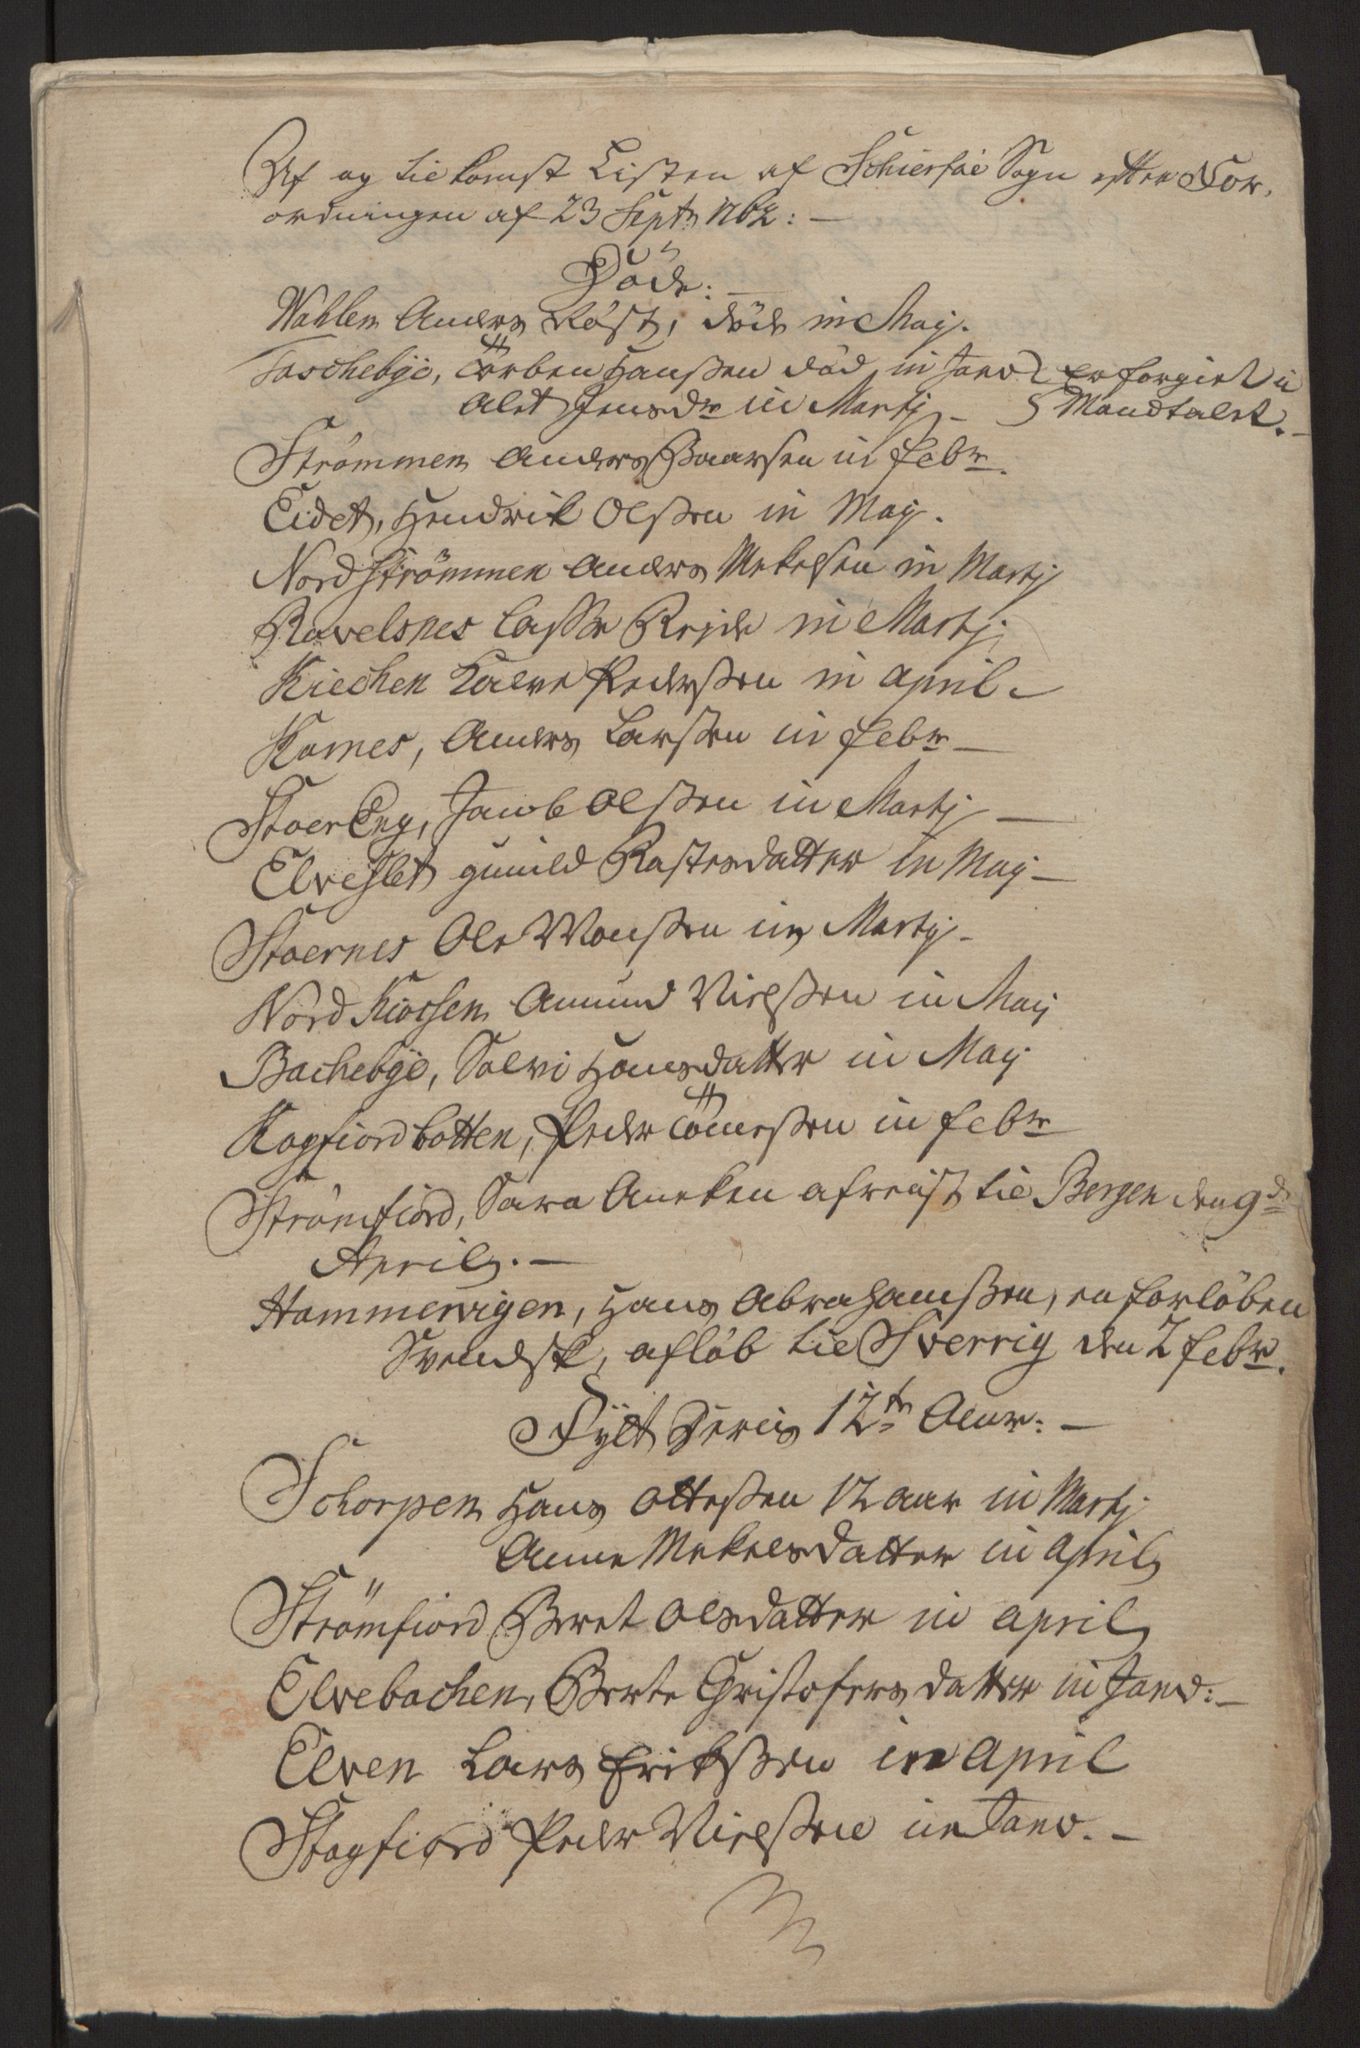 Af og til komst Listen af Schierføe Sogn efter For-
ordningen af 23 Septr 1762: —
Døde: —
Wahlen Anders Røst, døde in Maj.
Taschebye, Törben Hanssen död in Janv } er forgiet i
Alet Jensdr in Martj — } Mandtalet. —
Strømmen Anders Baarsen in Febr.
Eidet, Hendrik Olssen in Maj.
Nordstrømmen Anders Mekelsen in Martj
Ravelsnes Lasse Rejde in Martj
Kiechen Halve Pederssen in April —
Kornes, Anders Larssen in Febr —
StoerEng, Jacob Olssen in Martj —
Elveslet gunild Rastesdatter in Maj —
Stoernes Ole Monssen in Martj —
Nord Kiorsen Amund Nielssen in Maj
Bachebye, Solvi Hansdatter in Maj
Kagfiordbotten, Peder Tömessen in Febr
Strømfiord, Sara Aneken afreist til Bergen den 9de
April. —
Hammervigen, Hans Abrahamssen, en forløben
Svendsk, afløb til Sverrig den 2 Febr.
Fyldt Deris 12te Aar: —
Schorpen Hans Ottessen 12 aar in Martj
Anne Mekelsdatter in April
Strømfiord Beret Olsdatter in April
Elvebachen, Berte Christofersdatter in Janv: —
Elven Lars Erikssen in April
Stagfiord Peder Nielssen in Janv. —